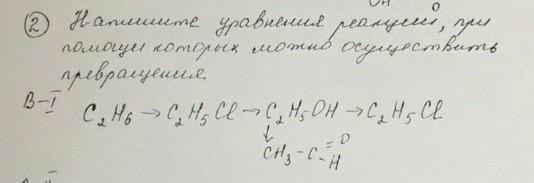 ОН
② Напишите уравнения реакций, при
помощи которых можно осуществить
превращения.
В-I C₂H₆ → C₂H₅Cl → C₂H₅OH → C₂H₅Cl
↓
CH₃-C=O
-H